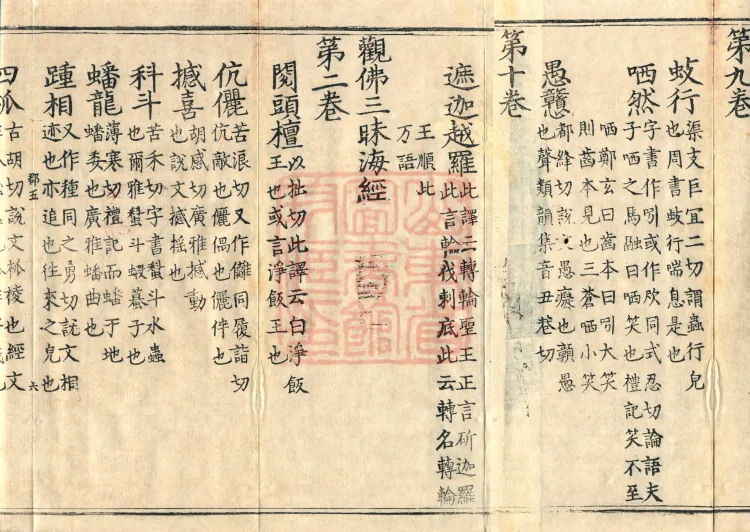 第九卷
蚑行渠支巨宜二切謂蟲行皃
也周書蚑行喘息是也
哂然字書作吲或作欣同式忍切論語夫
子哂之馬融曰哂笑也禮記笑不至
哂鄭玄曰齒本曰吲大笑
則齒本見也三蒼哂小笑
愚戇都絳切説文愚癡也戇愚
也聲類韻集音丑巷切
第十卷
遮迦越羅此譯云轉輪聖王正言斫迦羅
此言輪伐剌底此云轉名轉輪
王順此
万語
觀佛三昧海經
第二卷
閱頭檀以拙切此譯云白淨飯
王也或言淨飯王也
伉儷苦浪切又作儷同履詣切
伉敵也儷偶也儷伴也
撼喜胡感切廣雅撼動
也說文撼搖也
科斗苦禾切字書蝌斗水蟲
也爾雅蝌斗蝦蟇子也
蟠龍薄寒切禮記而蟠于地
蟠委也廣雅蟠曲也
踵相又作種同之勇切説文相
迹也亦追也往來之皃也
六
四柧古胡切說文柧棱也經文